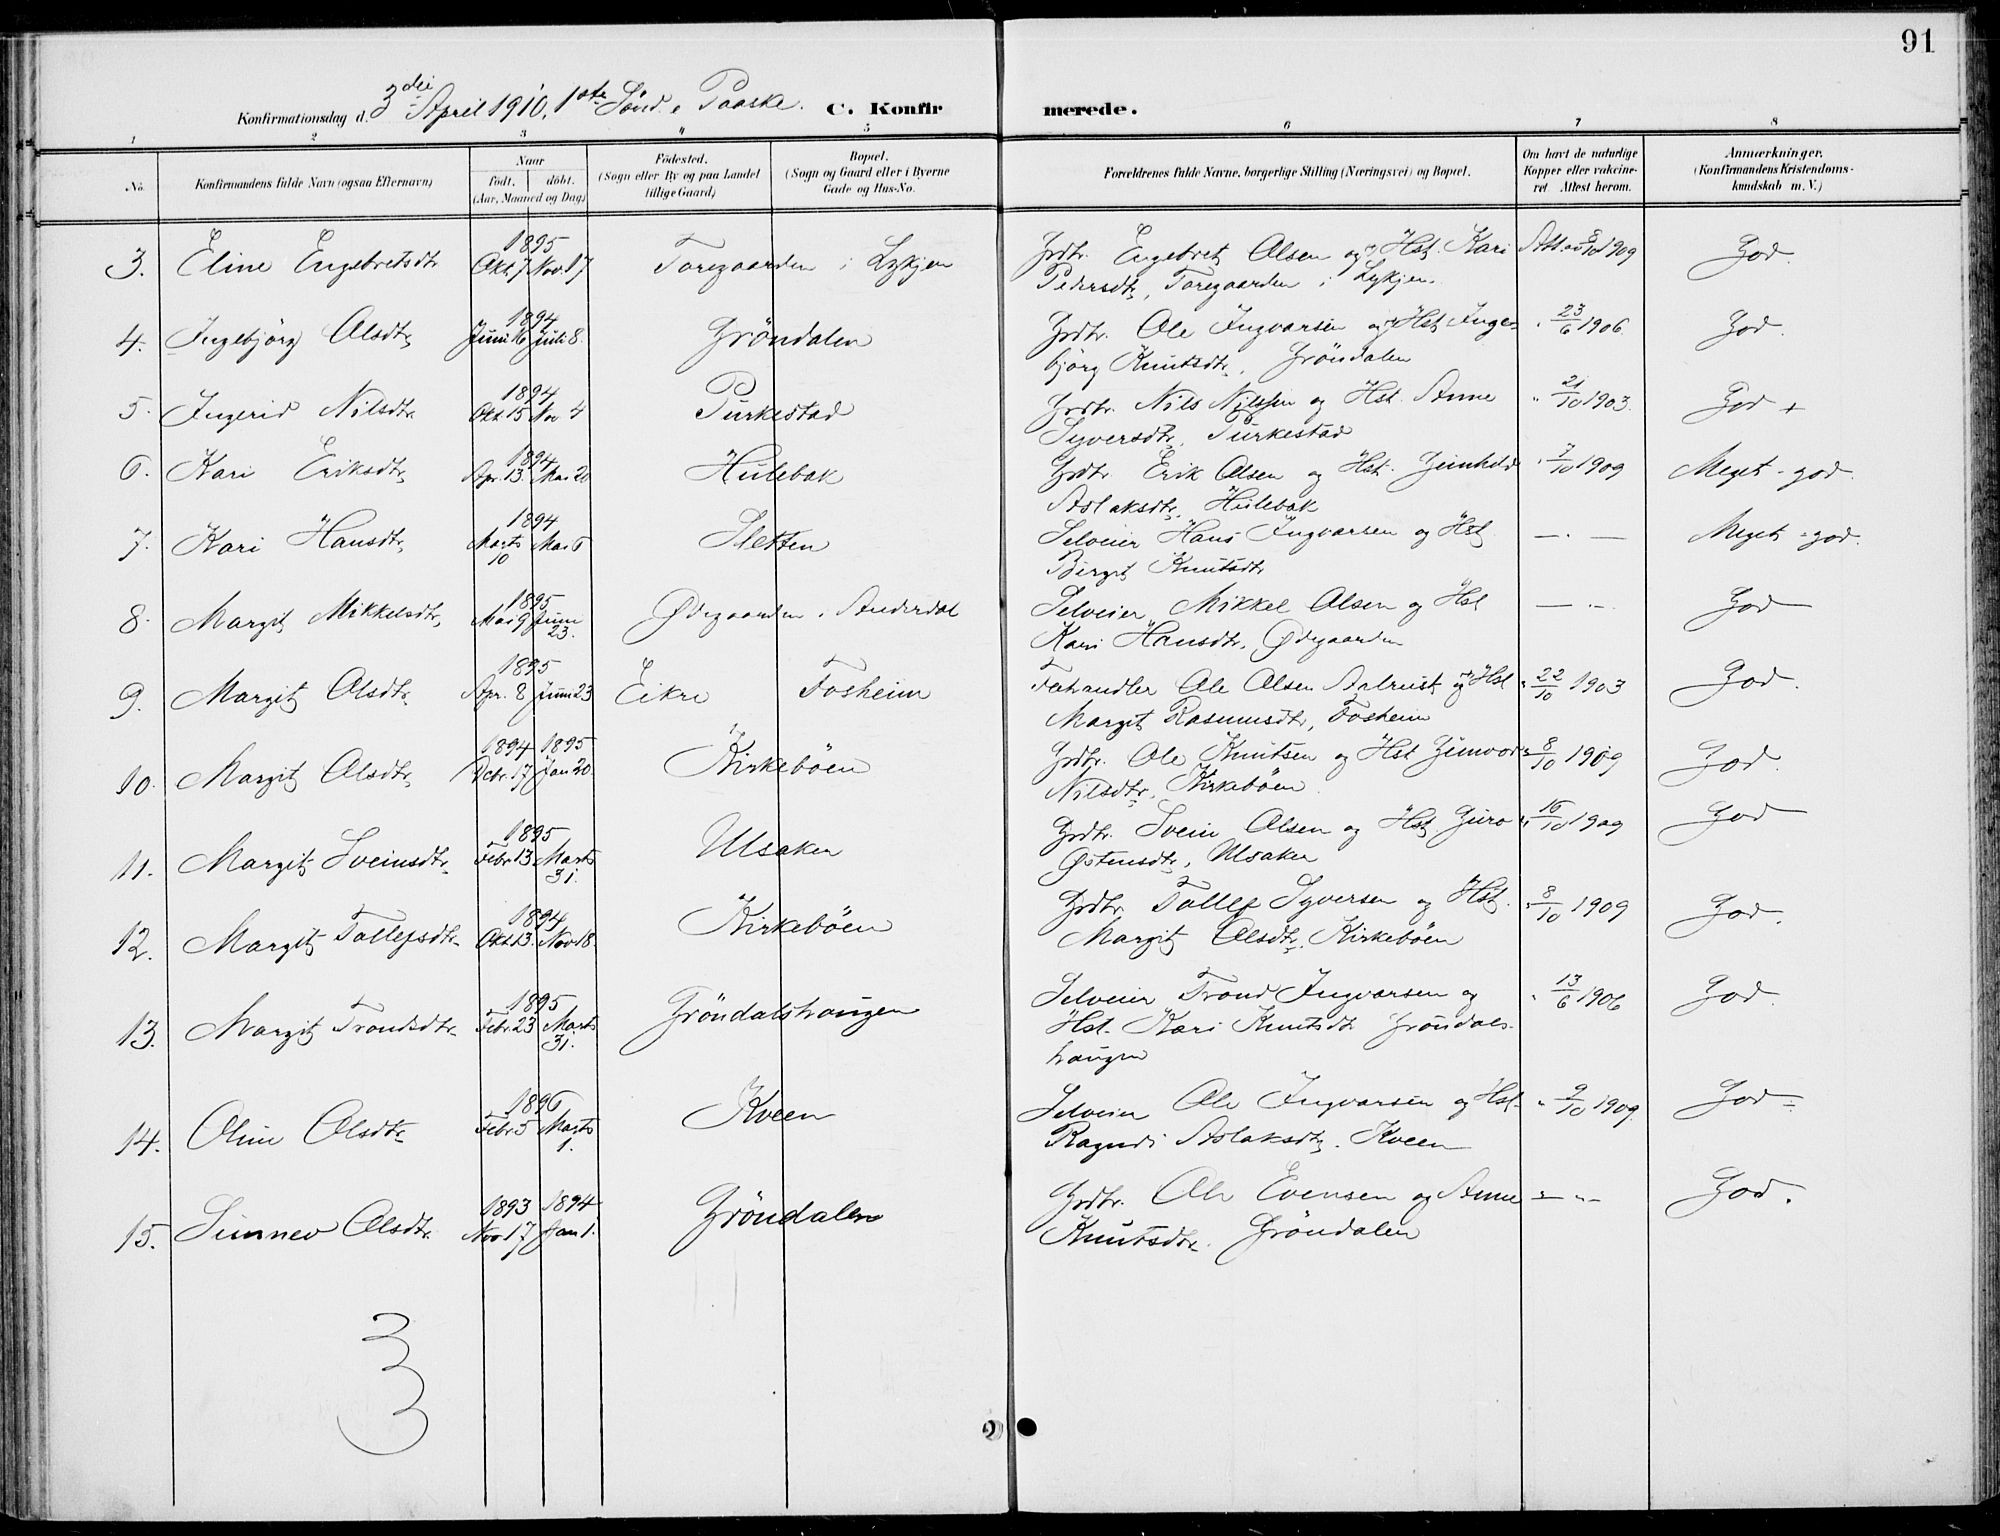 91
Konfirmationsdag d. 3die April 1910, 1ste Sönd. e. Paaske. C. Konfirmerede.
1 2 3 4 5 6 7 8
No. Konfirmandens fulde Navn (ogsaa Efternavn) Naar født. døbt. (Aar, Maaned og Dag) Fødested. (Sogn eller By og paa Landet tillige Gaard) Bopæl. (Sogn og Gaard eller i Byerne Gade og Hus-No. Forældrenes fulde Navne, borgerlige Stilling (Næringsvei) og Bopæl. Om havt de naturlige Kopper eller vakcineret. Attest herom. Anmærkninger. (Konfirmandens Kristendomskundskab m. V.)
3. Eline Engebretsdtr 1895 Okt. 7 Nov. 17 Toregaarden i Lykjen Grdbr. Engebret Olsen og Hst. Kari Att. av 8/10 1909 God.
Pedersdtr, Toregaarden i Lykjen.
4. Ingebjörg Olsdtr 1894 Juni 16 Juli 8. Gröndalen Grdbr. Ole Ingvarsen og Hst. Inge- " 23/6 1906. God.
björg Knutsdtr, Gröndalen
5. Ingerid Nilsdtr. 1894 Okt. 15 Nov 4 Purkestad Grdbr. Nils Nilssen og Hst. Anne " 21/10 1903. God +
Syversdtr, Purkestad
6. Kari Eriksdtr, 1894 Apr. 13. Mai 20 Hulebak Grdbr Erik Olsen og Hst. Gunhild " 7/10 1909 Meget-god.
Aslaksdtr, Hulebak
7. Kari Hansdtr, 1894 Marts 10 Mai 6 Sletten Selveier Hans Ingvarsen og Hst — " — Meget-god.
Birgit Knutsdtr
8. Margit Mikkelsdtr, 1895 Mai 9 Juni 23. Ødegaarden i Anderdal Selveier Mikkel Olsen og Hst — " — God
Kari Hansdtr, Ødegaarden
9. Margit Olsdtr 1895 Apr. 8 Juni 23 Eikre Fosheim Fæhandler Ole Olsen Aalrust og Hst " 22/10 1903 God.
Margit Rasmusdtr, Fosheim
10. Margit Olsdtr, 1894 Dcbr. 17 1895 Jan 20. Kirkeböen Grdbr. Ole Knutsen og Hst Gunvor " 8/10 1909 God.
Nilsdtr, Kirkeböen.
11. Margit Sveinsdtr 1895 Febr 13 Marts 31. Ulsaker Grdbr. Svein Olsen og Hst Guro " 16/10 1909 God
Østensdtr, Ulsaker
12. Margit Tollefsdtr 1894 Okt. 13. Nov 18. Kirkeböen Grdbr Tollef Syversen og Hst. " 8/10 1909 God.
Margit Olsdtr, Kirkeböen
13. Margit Trondsdtr 1895 Febr. 23 Marts 31. Gröndalshaugen Selveier Trond Ingvarsen og " 13/6 1906 God.
Hst. Kari Knutsdtr Gröndals-
haugen
14. Oline Olsdtr 1896 Febr 5 Marts 1. Kveen Selveier Ole Ingvarsen og Hst. " 9/10 1909. God
Ragndi Aslaksdtr. Kveen
15. Sunnev Olsdtr. 1893 Nov 17 1894 Jan 1. Gröndalen Grdbr. Ole Evensen og Anne — " — God.
Knutsdtr. Gröndalen
3
3